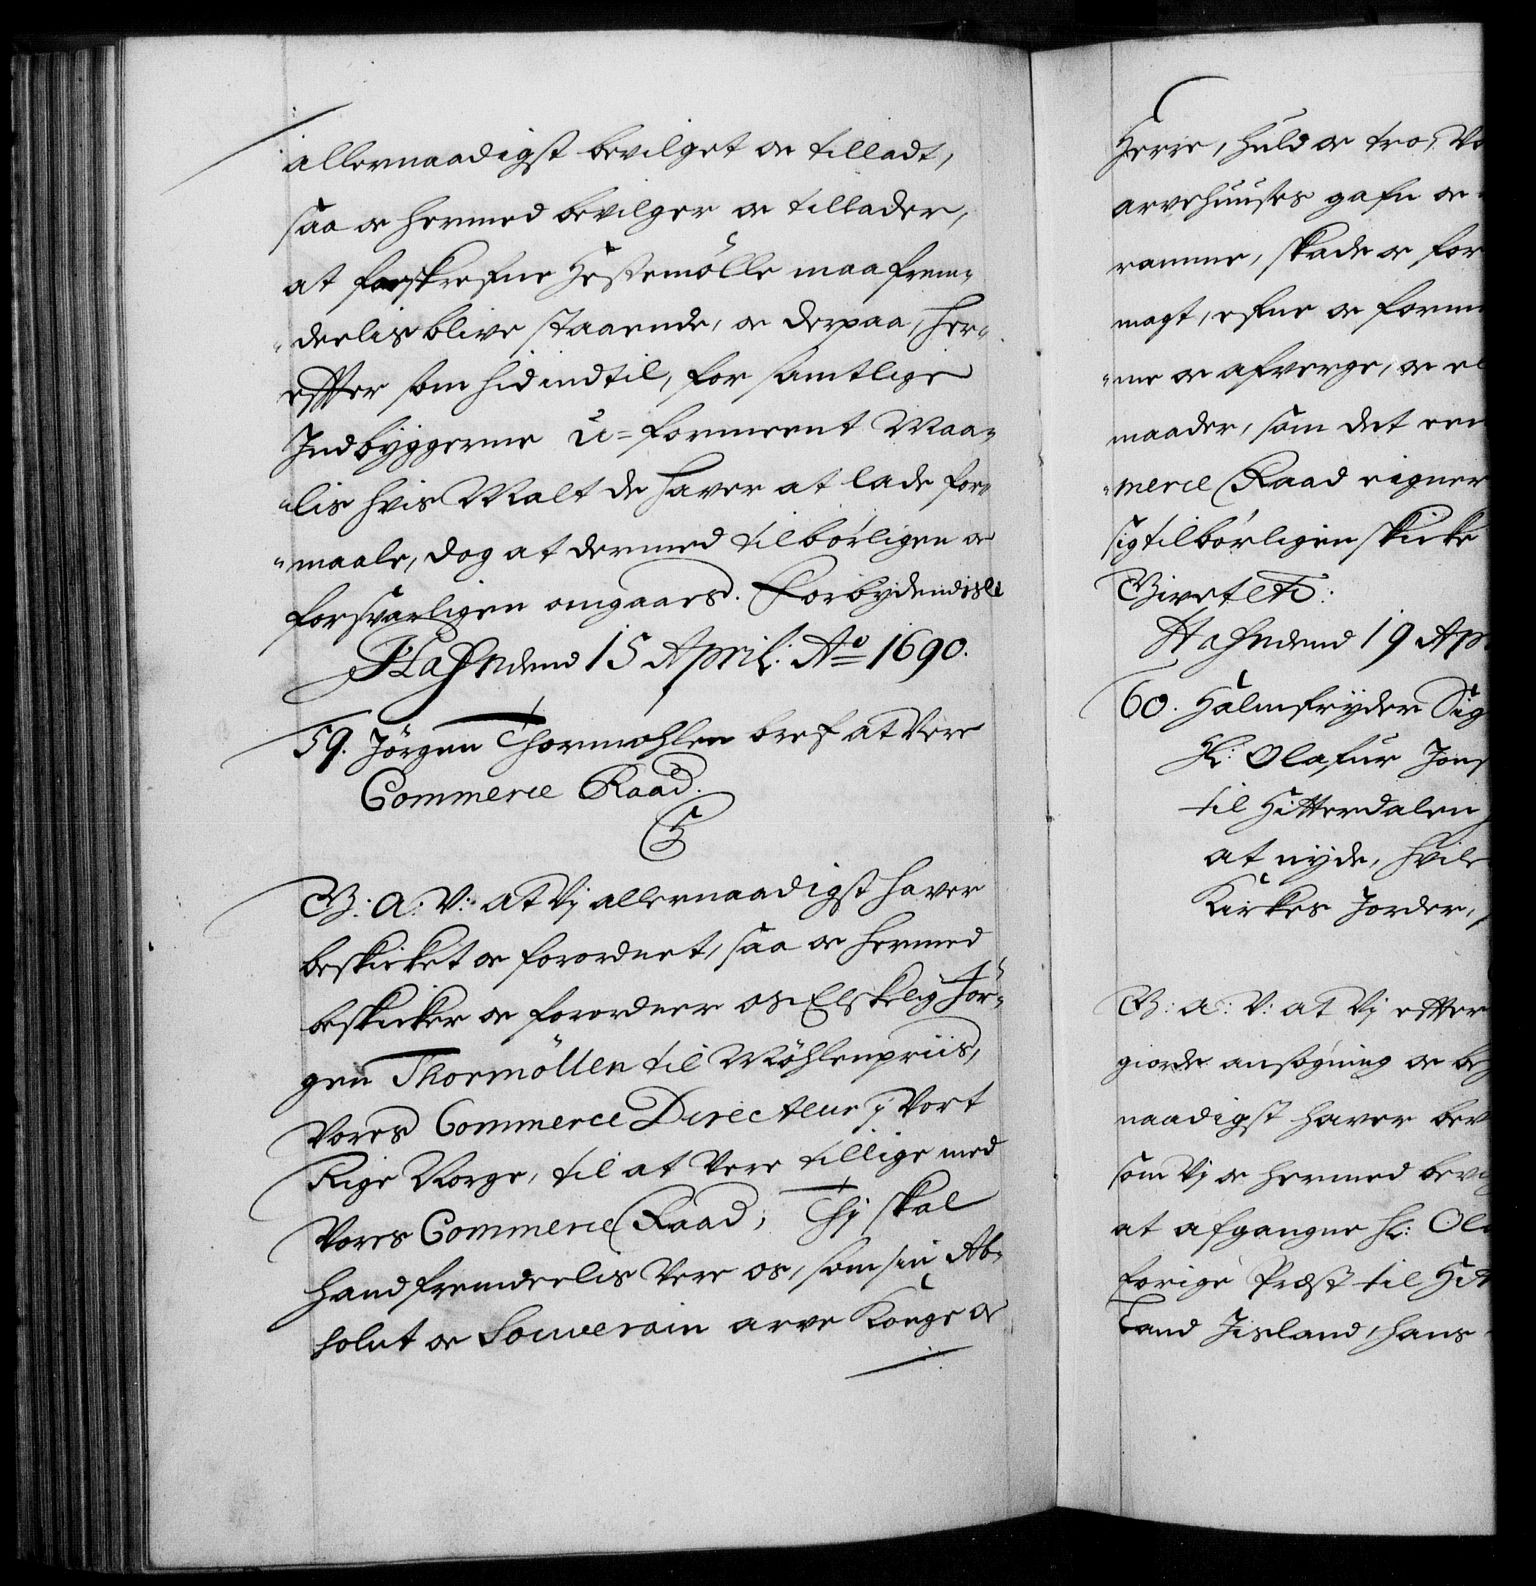 allernaadigst bevilget oc tilladt,
saa oc hermed bevilger oc tillader,
at forskrefne Hestemölle maa frem„
„deelis blive staaende, oc derpaa, her„
effter som hid indtil, for samtlige
Indbyggerne u=formeent Maa„
„lis hvis Malt de haver at lade for„
„maale, dog at dermed tilbörligen oc
forsvarligen omgaaes. Forbydendis &c
Hafn dend 15 April: Aº 1690.
59. Jörgen Thormohlen bref at Vere
Commerce Raad.
C5
G: A: V: at Vj allernaadigst haver
beskicket oc forordnet, saa oc hermed
beskicker oc forordner os Elskelig Jör„
gen Thormöllen til Möhlenpriis,
Vores Commerce Directeur j Vort
Rige Norge, til at Vere tillige med
Vores Commerce Raad; Thj skal
hand fremdeelis Vere os, som sin Ab„
solut oc Souverain arve Konge oc
Herre, huld oc tro, Vo
arvehuuses gafn oc
ramme, skade oc for
magt, efne oc formu
„me oc afverge, oc el
maader, som det een
„merce Raad eigner
sig tilbörligen skicke
Givet etc:
Hafn dend 19 Apr
60. Halmfryder Sig
Hr: Olafur Jons
til Hitterdalen
at nyde, hvile
Kirkes Jorder,
G: A: V: at Vj effter
giorde ansögning oc beg
naadigst haver bev
som Vj oc hermed bevi
at afgangne Hr: Ola
forige Præst til Hit
Land Iisland, hans